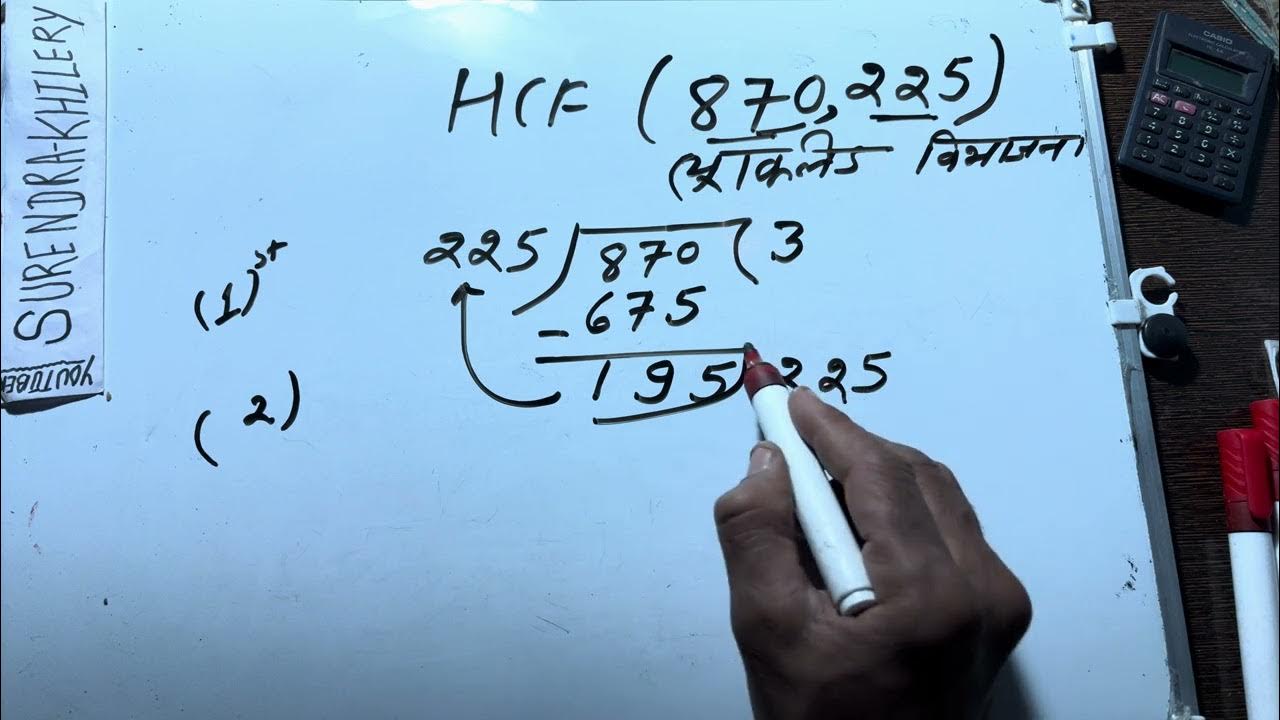 HCF (870, 225)
यूक्लिड विभाजन
225 ) 870 ( 3
- 675
195 ) 225
(1)st
(2)
SURENDRA-KHILERY
YOUTUBER
CASIO